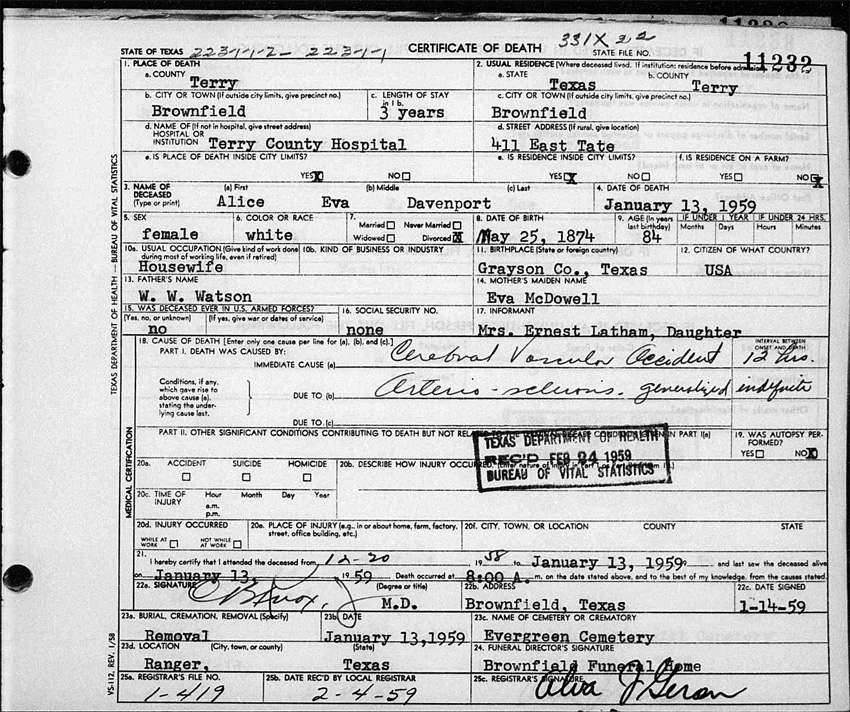 STATE OF TEXAS 223-1-1-2- 223-1-1 CERTIFICATE OF DEATH 331X 22 STATE FILE NO. 11232
1. PLACE OF DEATH
a. COUNTY Terry
2. USUAL RESIDENCE (Where deceased lived. If institution: residence before admission)
a. STATE Texas b. COUNTY Terry
b. CITY OR TOWN (If outside city limits, give precinct no.) Brownfield
c. LENGTH OF STAY in 1 b. 3 years
c. CITY OR TOWN (If outside city limits, give precinct no.) Brownfield
d. NAME OF (If not in hospital, give street address) HOSPITAL OR INSTITUTION Terry County Hospital
d. STREET ADDRESS (If rural, give location) 411 East Tate
e. IS PLACE OF DEATH INSIDE CITY LIMITS? YES X NO
e. IS RESIDENCE INSIDE CITY LIMITS? YES X NO
f. IS RESIDENCE ON A FARM? YES NO X
3. NAME OF DECEASED (Type or print) (a) First (b) Middle (c) Last
Alice Eva Davenport
4. DATE OF DEATH January 13, 1959
5. SEX female
6. COLOR OR RACE white
7. Married Never Married Widowed Divorced X
8. DATE OF BIRTH May 25, 1874
9. AGE (In years last birthday) 84
IF UNDER 1 YEAR Months Days
IF UNDER 24 HRS. Hours Minutes
10a. USUAL OCCUPATION (Give kind of work done during most of working life, even if retired) Housewife
10b. KIND OF BUSINESS OR INDUSTRY
11. BIRTHPLACE (State or foreign country) Grayson Co., Texas
12. CITIZEN OF WHAT COUNTRY? USA
13. FATHER'S NAME W. W. Watson
14. MOTHER'S MAIDEN NAME Eva McDowell
15. WAS DECEASED EVER IN U.S. ARMED FORCES? (Yes, no, or unknown) (If yes, give war or dates of service) no
16. SOCIAL SECURITY NO. none
17. INFORMANT Mrs. Ernest Latham, Daughter
18. CAUSE OF DEATH [Enter only one cause per line for (a), (b), and (c).]
PART I. DEATH WAS CAUSED BY:
IMMEDIATE CAUSE (a) Cerebral Vascular Accident
INTERVAL BETWEEN ONSET AND DEATH 12 hrs.
Conditions, if any, which gave rise to above cause (a), stating the underlying cause last.
DUE TO (b) Arterio-sclerosis. generalized indefinite
DUE TO (c)
PART II. OTHER SIGNIFICANT CONDITIONS CONTRIBUTING TO DEATH BUT NOT RELATED IN PART I(a)
TEXAS DEPARTMENT OF HEALTH
REC'D FEB 24 1959
BUREAU OF VITAL STATISTICS
19. WAS AUTOPSY PERFORMED? YES NO X
20a. ACCIDENT SUICIDE HOMICIDE
20b. DESCRIBE HOW INJURY OCCURRED.
20c. TIME OF INJURY Hour Month Day Year
a.m.
p.m.
20d. INJURY OCCURRED WHILE AT WORK NOT WHILE AT WORK
20e. PLACE OF INJURY (e.g., in or about home, farm, factory, street, office building, etc.)
20f. CITY, TOWN, OR LOCATION COUNTY STATE
21. I hereby certify that I attended the deceased from 12-20 1958 to January 13, 1959 and last saw the deceased alive
on January 13, 1959 Death occurred at 8:00 A. m. on the date stated above, and to the best of my knowledge, from the causes stated.
22a. SIGNATURE (Degree or title) M.D.
22b. ADDRESS Brownfield, Texas
22c. DATE SIGNED 1-14-59
23a. BURIAL, CREMATION, REMOVAL (Specify) Removal
23b. DATE January 13,1959
23c. NAME OF CEMETERY OR CREMATORY Evergreen Cemetery
23d. LOCATION (City, town, or county) (State) Ranger, Texas
24. FUNERAL DIRECTOR'S SIGNATURE Brownfield Funeral Home
25a. REGISTRAR'S FILE NO. 1-419
25b. DATE REC'D BY LOCAL REGISTRAR 2-4-59
25c. REGISTRAR'S SIGNATURE Alva J Geron
TEXAS DEPARTMENT OF HEALTH — BUREAU OF VITAL STATISTICS
MEDICAL CERTIFICATION
VS-112, REV. 1/58